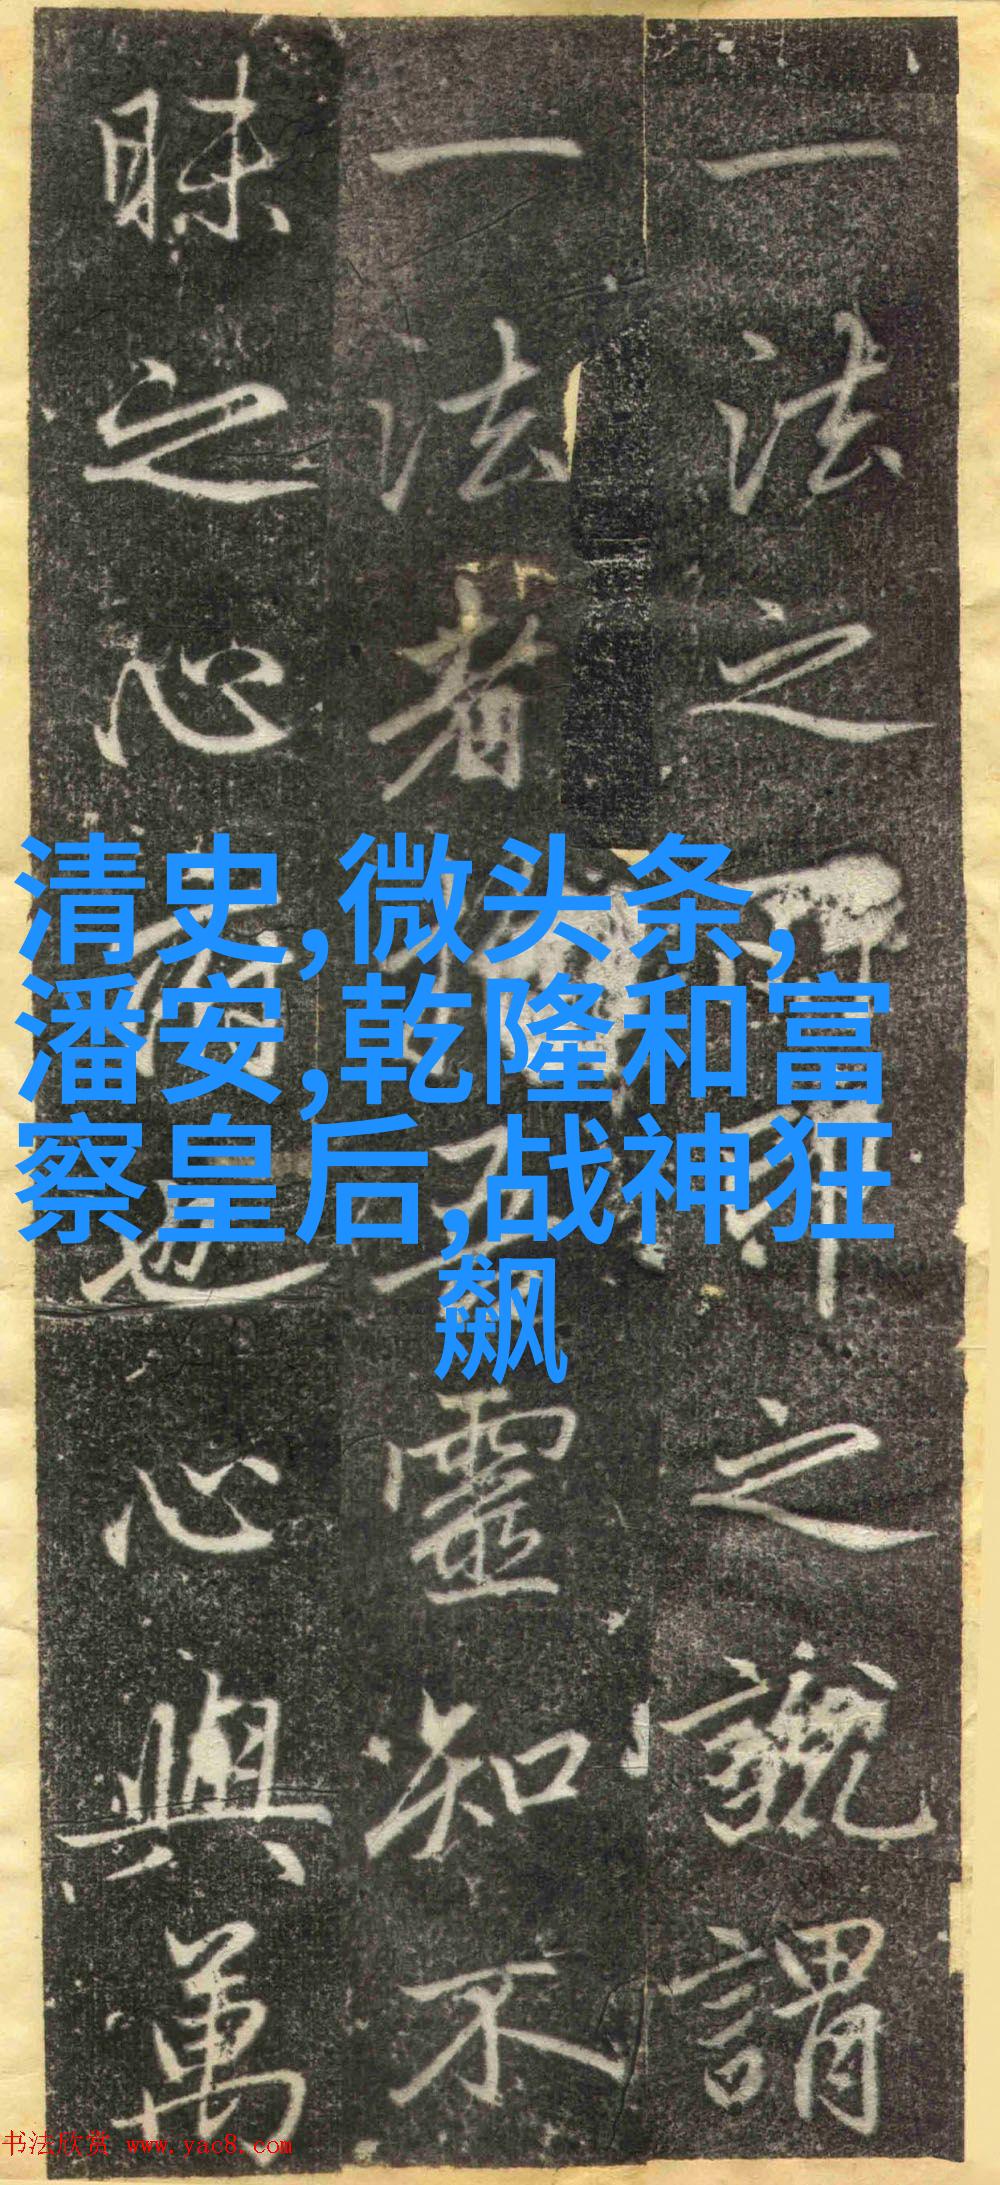 一法之之謂
一法者靈知不
昧之心也心與萬
清史,微头条,
潘安,乾隆和富
察皇后,战神狂
飙
书法欣赏 www.yac8.com